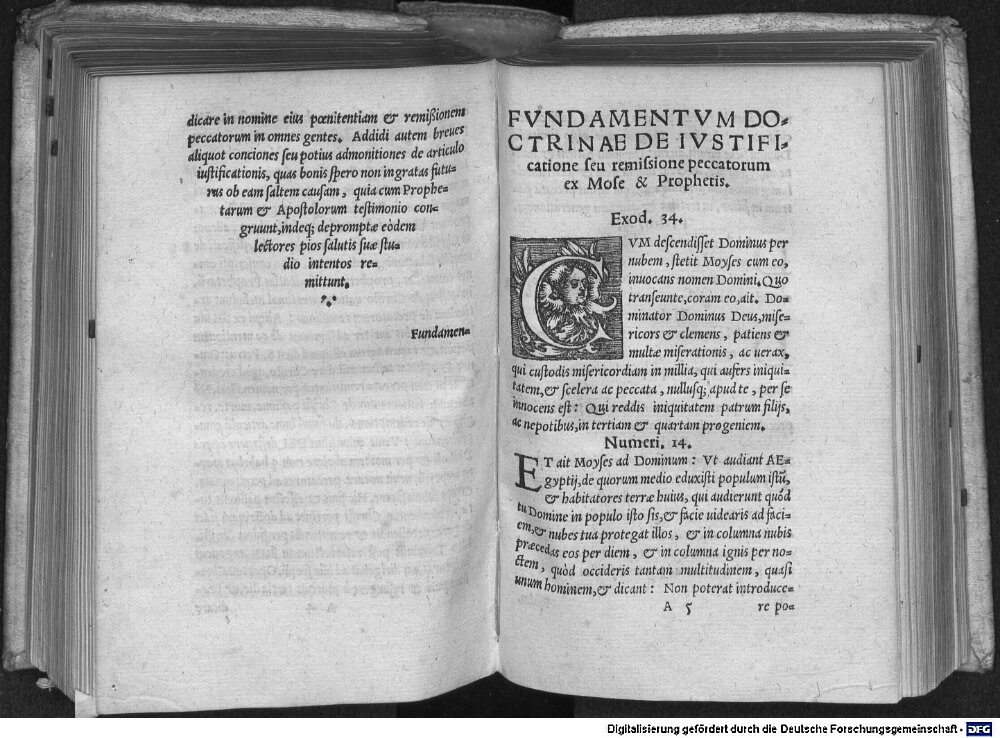 dicare in nomine eius pœnitentiam & remißionem
peccatorum in omnes gentes. Addidi autem breues
aliquot conciones seu potius admonitiones de articulo
iustificationis, quas bonis spero non ingratas futu-
ras ob eam saltem causam, quia cum Prophe-
tarum & Apostolorum testimonio con-
gruunt, indeq; depromptæ eòdem
lectores pios salutis suæ stu-
dio intentos re-
mittunt.
Fundamen-
FVNDAMENTVM DO-
CTRINAE DE IVSTIFI-
catione seu remissione peccatorum
ex Mose & Prophetis.
Exod. 34.
CVM descendisset Dominus per
nubem, stetit Moyses cum eo,
inuocans nomen Domini. Quo
transeunte, coram eo, ait. Do-
minator Dominus Deus, mise-
ricors & clemens, patiens &
multæ miserationis, ac uerax,
qui custodis misericordiam in millia, qui aufers iniqui-
tatem, & scelera ac peccata, nullusq; apud te, per se
innocens est: Qui reddis iniquitatem patrum filijs,
ac nepotibus, in tertiam & quartam progeniem.
Numeri. 14.
ET ait Moyses ad Dominum: Vt audiant AE-
gyptij, de quorum medio eduxisti populum istũ,
& habitatores terræ huius, qui audierunt quòd
tu Domine in populo isto sis, & facie uidearis ad faci-
em, & nubes tua protegat illos, & in columna nubis
præcedas eos per diem, & in columna ignis per no-
ctem, quòd occideris tantam multitudinem, quasi
unum hominem, & dicant: Non poterat introduce-
A 5 re po-
Digitalisierung gefördert durch die Deutsche Forschungsgemeinschaft - DFG